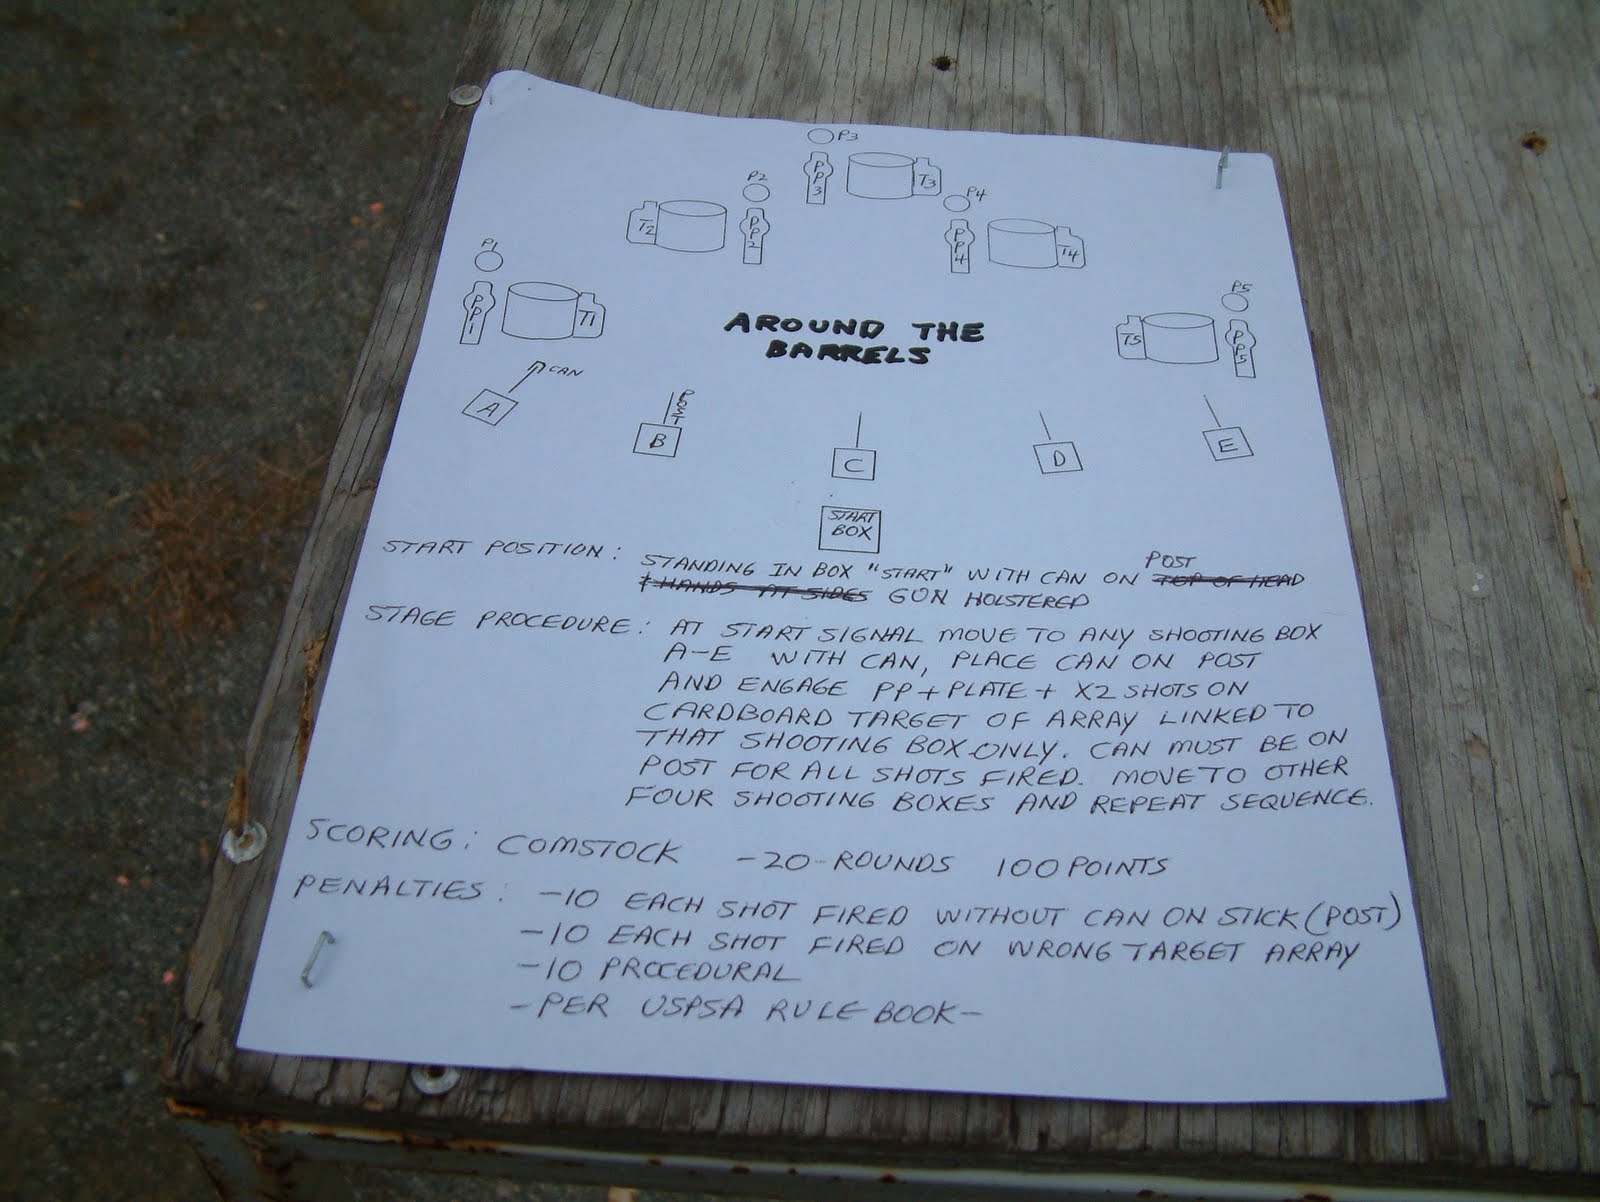 P3
P2
PP3
T3
P4
T2
PP2
PP4
T4
P1
PP1
T1
P5
T5
PP5
AROUND THE
BARRELS
CAN
A
POST
B
C
D
E
START
BOX
START POSITION: STANDING IN BOX "START" WITH CAN ON POST TOP OF HEAD
& HANDS AT SIDES GUN HOLSTERED
STAGE PROCEDURE: AT START SIGNAL MOVE TO ANY SHOOTING BOX
A-E WITH CAN, PLACE CAN ON POST
AND ENGAGE PP + PLATE + X2 SHOTS ON
CARDBOARD TARGET OF ARRAY LINKED TO
THAT SHOOTING BOX ONLY. CAN MUST BE ON
POST FOR ALL SHOTS FIRED. MOVE TO OTHER
FOUR SHOOTING BOXES AND REPEAT SEQUENCE.
SCORING: COMSTOCK -20-ROUNDS 100 POINTS
PENALTIES: -10 EACH SHOT FIRED WITHOUT CAN ON STICK (POST)
-10 EACH SHOT FIRED ON WRONG TARGET ARRAY
-10 PROCEDURAL
-PER USPSA RULE BOOK-